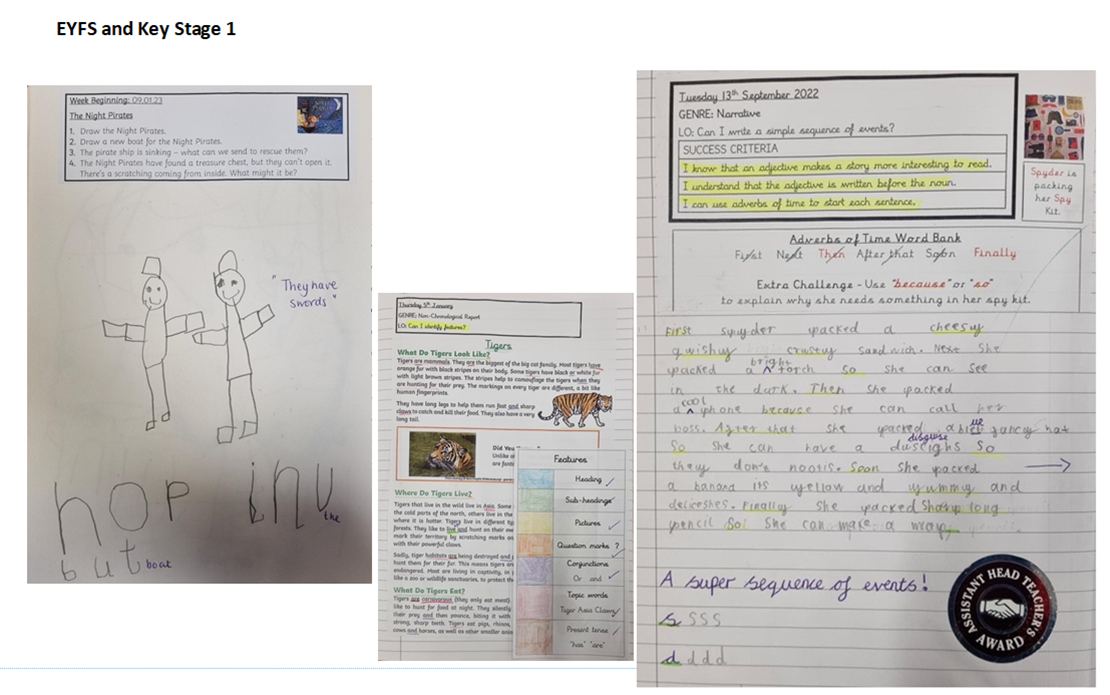 EYFS and Key Stage 1
Week Beginning: 09.01.23
The Night Pirates
1. Draw the Night Pirates.
2. Draw a new boat for the Night Pirates.
3. The pirate ship is sinking – what can we send to rescue them?
4. The Night Pirates have found a treasure chest, but they can't open it.
There's a scratching coming from inside. What might it be?
"They have
swords"
hop in
the
but boat
Thursday 5th January
GENRE: Non-Chronological Report
LO: Can I identify features?
Tigers
What Do Tigers Look Like?
Tigers are mammals. They are the biggest of the big cat family. Most tigers have
orange fur with black stripes on their body. Some tigers have black or white fur
with light brown stripes. The stripes help to camouflage the tigers when they
are hunting for their prey. The markings on every tiger are different, a bit like
human fingerprints.
They have long legs to help them run fast and sharp
claws to catch and kill their food. They also have a very
long tail.
Did You
Unlike
are
Where Do Tigers Live?
Tigers that live in the wild live in Asia. Some
the cold parts of the north, others live in the
where it is hotter. Tigers live in different
forests. They like to live and hunt on their own
mark their territory by scratching marks on
with their powerful claws.
Sadly, tiger habitats are being destroyed and
hunt them for their fur. This means tigers are
endangered. Most are living in captivity, in
like a zoo or wildlife sanctuaries, to protect
What Do Tigers Eat?
Tigers are carnivorous (they only eat meat).
like to hunt for food at night. They silently
their prey and then pounce, biting it with
strong, sharp teeth. Tigers eat pigs, rhinos,
cows and horses, as well as other smaller
Features
Heading
Sub-headings
Pictures
Question marks ?
Conjunctions
Or and
Topic words
Tiger Asia Claws
Present tense
"has" "are"
Tuesday 13th September 2022
GENRE: Narrative
LO: Can I write a simple sequence of events?
SUCCESS CRITERIA
I know that an adjective makes a story more interesting to read.
I understand that the adjective is written before the noun.
I can use adverbs of time to start each sentence.
Spyder is
packing
her Spy
Kit.
Adverbs of Time Word Bank
First Next Then After that Soon Finally
Extra Challenge - Use "because" or "so"
to explain why she needs something in her spy kit.
First spyder packed a cheesy
qwishy crustuy sandwich. Next she
bright
packed a ^ torch so she can see
in the dark. Then she packed
cool
a ^ iphone becauce she can call her
boss. After that she packed a blet fancy hat
ue
disguise
So she can have a duseighs So
they don't nootis. Soon she packed
a banana its yellow and yummy and
delicshes. Finally she packed sharp long
pencil So she can make a map.
A super sequence of events!
s s s s
d d d d
ASSISTANT HEAD TEACHER'S
AWARD